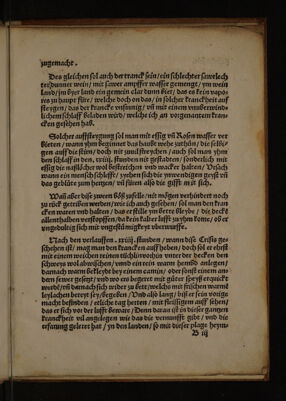 zugemacht.
Des gleichen sol auch der tranck sein / ein schlechter suwelech
ter dunner wein / mit sawer ampffer wasser gemengt / ym wein
land / ym Byer land ein gemein clar dunn bier / das es kein vapo
res zu haupt füre / welche doch on das / in solcher kranckheit auff
steygen / das der kranck vnsinnig / vnd mit einem vnüberwind-
lichem schlaff beladen wird / welche ich an vorgenantem kran-
cken gesehen hab.
Solcher auffsteygung sol man mit essig vn Rosen wasser ver
bieten / wann yhm beginnet das haubt wehe zuthun / die selbi-
gen auff die stirn / doch mit zuvil streychen / auch sol man yhm
den schlaff in den, xxiiij. stunden nit gestadten / sonderlich mit
essig die naßlöcher wol bestreichen vnd wacker halten / Vrsach
wann ein mensch schlefft / yzehen sich die ynwendigen geyst vn
das geblüte zum hertzen / vn füren also die gifft mit sich.
Wann aber dise zween böß zufelle / nit mögen verhindert noch
zu rück getriben werden / wie ich auch gesehen / sol man den kran
cken waren vnd halten / das er stille ym bette bleybe / die decke
allenthalben verstopffen / da kein kalter lufft zu yhm kome / ob er
vngedultig sich mit vngestümigkeyt vberwurffe.
Nach den verlauffen. xxiiij. stunden / wann dise Crisis ge
schehen ist / mag man den krancken auff heben / doch sol er ehyst
mit einem weychen reinen tüchlin vorhin vnter der decken den
schweys wol abwischen / vmb ein rein warm hembd anlegen /
darnach warm bekleydt bey einem camin / oder sonst einem an-
dern fewer gesetzt / vnd wo ers begeret mit güter speyß erquickt
werd / vn darnach sich wider zu bett / welchs mit frischen warme
leylachen bereyt sey / begeben / Vnd also lang / biß er sein vorige
macht befinden / etliche tag herten / mit fleissigem auff sehen /
das er sich vor der lufft beware / Denn daran ist in diser gantzen
kranckheit vil angelegen wie das die vernunfft gibt / vnd die
erfarung geleret hat / yn den landen / so mit diser plage heym-
B iij